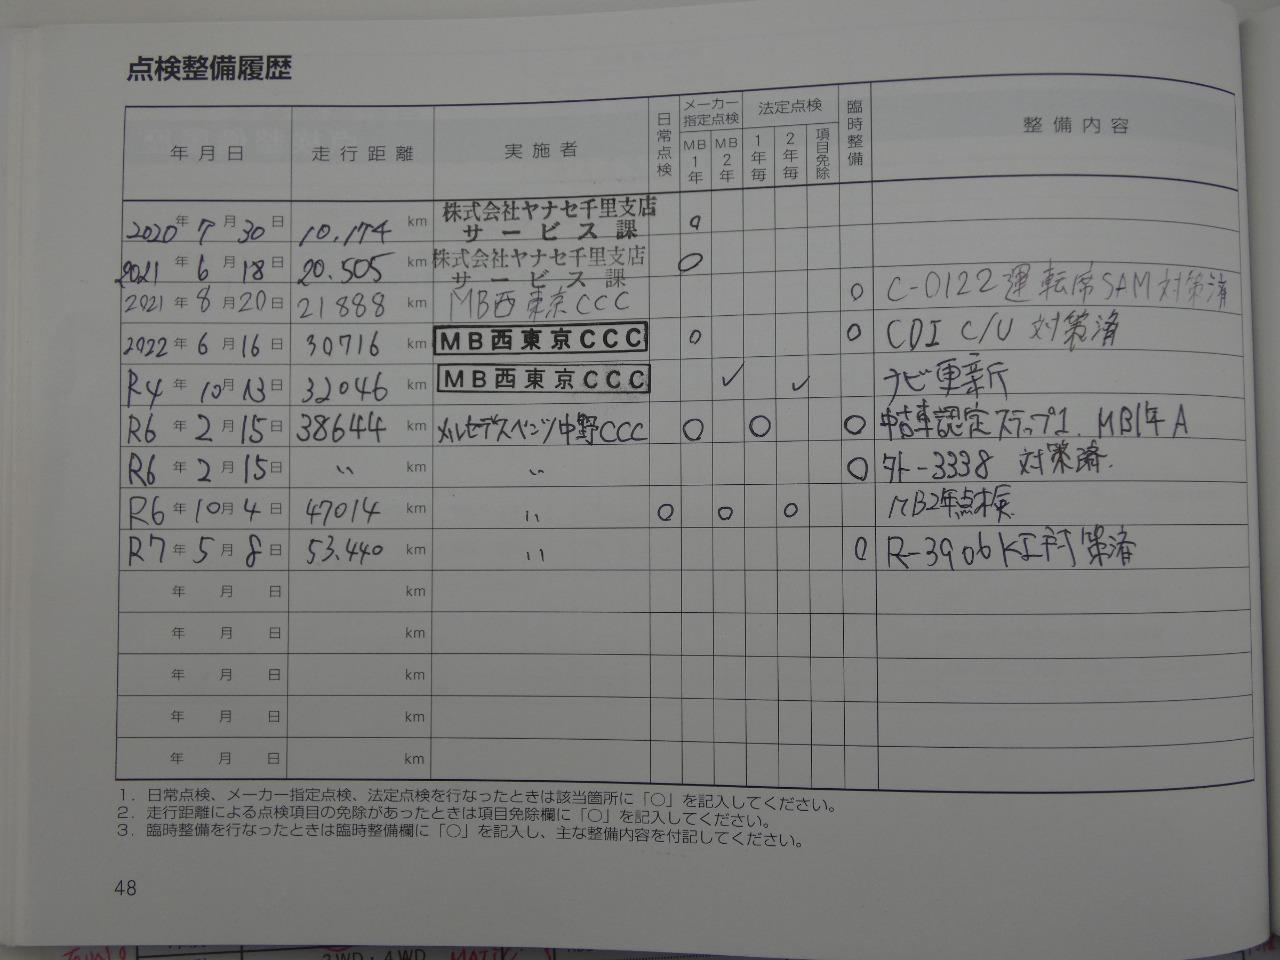 点検整備履歴
年月日 走行距離 実施者 日常点検 メーカー指定点検 MB1年 MB2年 法定点検 1年毎 2年毎 項目免除 臨時整備 整備内容
2020年7月30日 10.174 km 株式会社ヤナセ千里支店 ○
サービス課
2021年6月18日 20.505 km 株式会社ヤナセ千里支店 ○
サービス課
2021年8月20日 21888 km MB西東京CCC ○ C-0122運転席SAM対策済
2022年6月16日 30716 km MB西東京CCC ○ ○ CDI C/U 対策済
R4年10月13日 32046 km MB西東京CCC ✓ ✓ ナビ更新
R6年2月15日 38644 km メルセデスベンツ中野CCC ○ ○ ○ 中古車認定ステップ1. MB1年A
R6年2月15日 〃 km 〃 ○ 外-3338 対策済.
R6年10月4日 47014 km 〃 ○ ○ ○ MB2年点検
R7年5月8日 53.440 km 〃 ○ R-3906 対策済
年 月 日 km
年 月 日 km
年 月 日 km
年 月 日 km
年 月 日 km
1. 日常点検、メーカー指定点検、法定点検を行なったときは該当箇所に「○」を記入してください。
2. 走行距離による点検項目の免除があったときは項目免除欄に「○」を記入してください。
3. 臨時整備を行なったときは臨時整備欄に「○」を記入し、主な整備内容を付記してください。
48